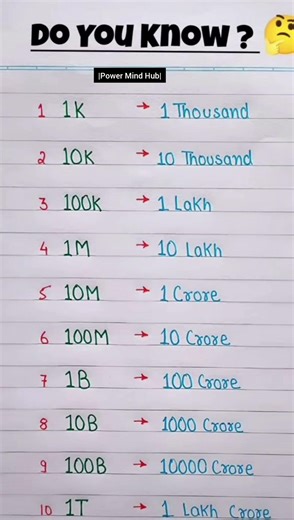 Do You Know ?
|Power Mind Hub|
1 1K → 1 Thousand
2 10K → 10 Thousand
3 100K → 1 Lakh
4 1M → 10 Lakh
5 10M → 1 Crore
6 100M → 10 Crore
7 1B → 100 Crore
8 10B → 1000 Crore
9 100B → 10000 Crore
10 1T → 1 Lakh Crore